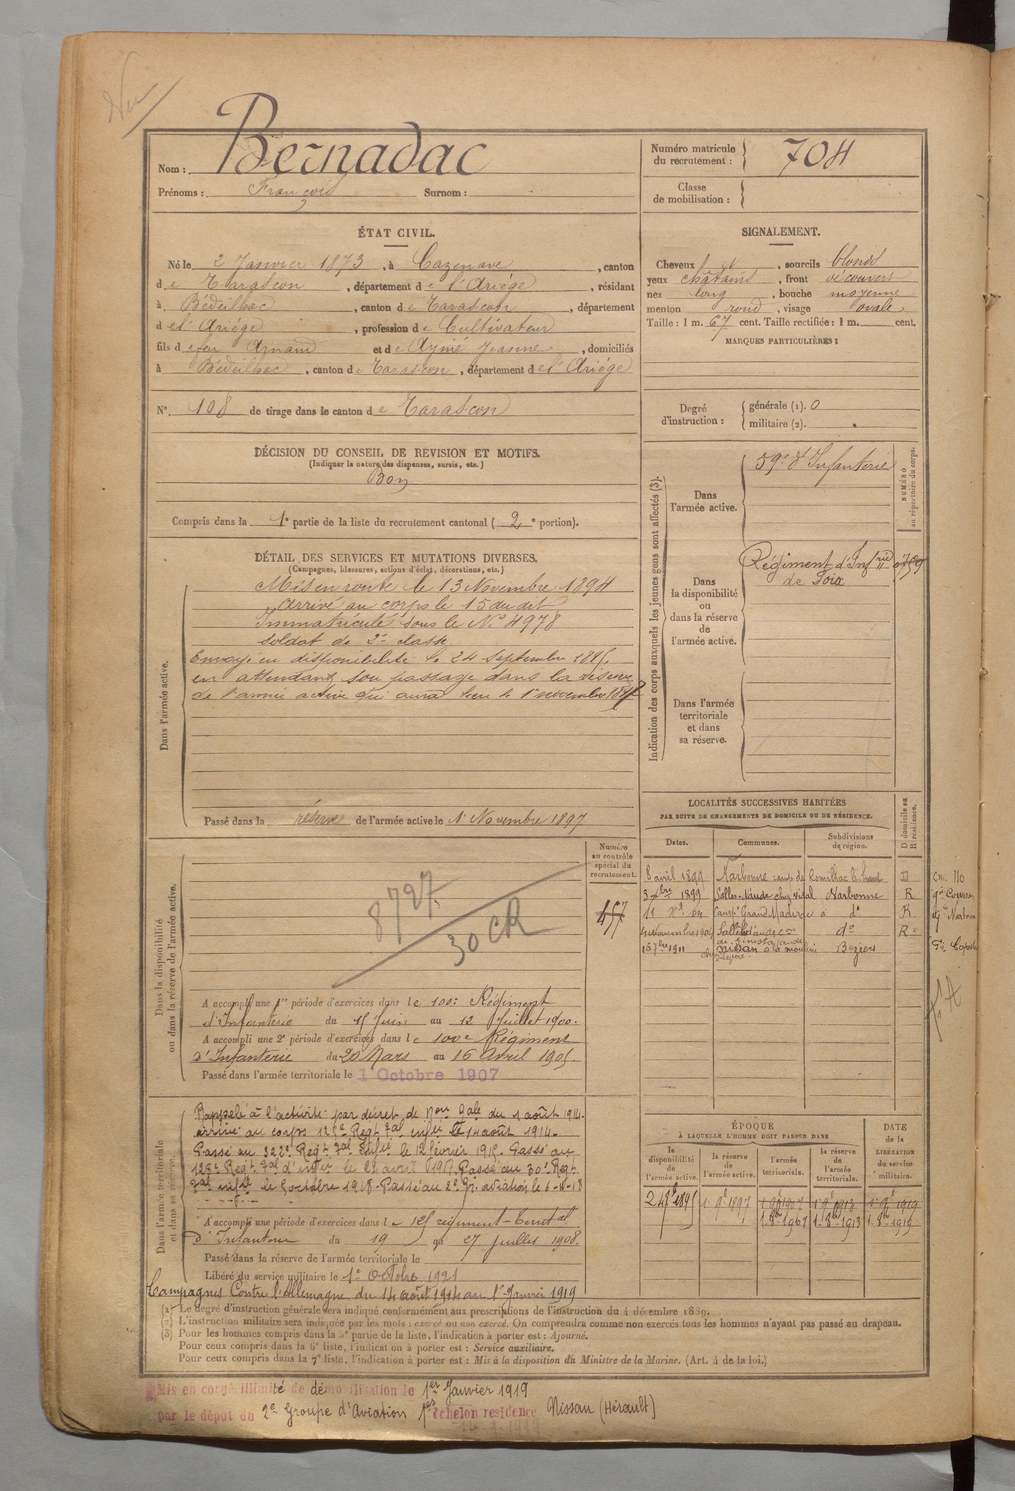 Vu
Nom : Bernadac
Prénoms : François Surnom :
Numéro matricule du recrutement : 704
Classe de mobilisation :
ÉTAT CIVIL.
Né le 2 Janvier 1873, à Cazenave, canton
de Tarascon, département de l'Ariége, résidant
à Bédeilhac, canton de Tarascon, département
de l'Ariége, profession de Cultivateur
fils de feu Arnaud et de Aymé Jeanne, domiciliés
à Bédeilhac, canton de Tarascon, département de l'Ariége
N° 108 de tirage dans le canton de Tarascon
SIGNALEMENT.
Cheveux et, sourcils blonds
yeux châtains, front découvert
nez long, bouche moyenne
menton rond, visage ovale
Taille : 1 m. 67 cent. Taille rectifiée : 1 m. cent.
MARQUES PARTICULIÈRES :
Degré d'instruction : générale (1). 0
militaire (2).
DÉCISION DU CONSEIL DE REVISION ET MOTIFS.
(Indiquer la nature des dispenses, sursis, etc.)
Bon
Compris dans la 1e partie de la liste du recrutement cantonal (2e portion).
DÉTAIL DES SERVICES ET MUTATIONS DIVERSES.
(Campagnes, blessures, actions d'éclat, décorations, etc.)
Dans l'armée active.
Mis en route le 13 Novembre 1894
Arrivé au corps le 15 du dit
Immatriculé sous le N° 4978
soldat de 2e classe
Envoyé en disponibilité le 24 Septembre 1895,
en attendant son passage dans la réserve
de l'armée active qui aura lieu le 1er novembre 1897
Passé dans la réserve de l'armée active le 1er Novembre 1897
Indication des corps auxquels les jeunes gens sont affectés (3).
NUMÉRO au répertoire du corps.
Dans l'armée active.
59e d'Infanterie
Dans la disponibilité ou dans la réserve de l'armée active.
Régiment d'Infrie
de Foix
Dans l'armée territoriale et dans sa réserve.
LOCALITÉS SUCCESSIVES HABITÉES
PAR SUITE DE CHANGEMENTS DE DOMICILE OU DE RÉSIDENCE.
Dates. Communes. Subdivisions de région. D domicile ou R résidence.
8 avril 1899 Narbonne D
3 1899 Salles d'aude chez Vidal Narbonne R
11 Grand Mandirac do R
novembre Salles d'aude do R
1911 Nissan Béziers
Numéro au contrôle spécial du recrutement.
457
Dans la disponibilité ou dans la réserve de l'armée active.
8727
30 CR
A accompli une 1re période d'exercices dans le 100e Régiment
d'Infanterie du 15 Juin au 12 Juillet 1900.
A accompli une 2e période d'exercices dans le 100e Régiment
d'Infanterie du 20 Mars au 16 Avril 1905.
Passé dans l'armée territoriale le 1 Octobre 1907
Dans l'armée territoriale et dans sa réserve.
Rappelé à l'activité par décret de Mon Gale du 1 août 1914.
arrivé au corps 125e Regt Tal infie le 14 août 1914.
Passé au 322e Regt Tal Infie le 12 février 1915. Passé au
128e Regt Tal d'infie le 21 avril 1917. Passé au 30e Regt
Tal infie le 5 octobre 1918. Passé au 2e Gr. aviation le 6-11-18
A accompli une période d'exercices dans le 125 régiment Territal
d'Infanterie du 19 au 27 juillet 1908.
Passé dans la réserve de l'armée territoriale le
Libéré du service militaire le 1er Octobre 1921
Campagnes Contre l'Allemagne du 14 août 1914 au 1er Janvier 1919
ÉPOQUE
À LAQUELLE L'HOMME DOIT PASSER DANS
la disponibilité de l'armée active. la réserve de l'armée active. l'armée territoriale. la réserve de l'armée territoriale.
DATE de la LIBÉRATION du service militaire.
24 7bre 1895 1 9e 1897 1 9e 1907 1 9e 1913 1 9e 1919
1 8bre 1907 1 8bre 1913 1 8bre 1919
(1) Le degré d'instruction générale sera indiqué conformément aux prescriptions de l'instruction du 4 décembre 1889.
(2) L'instruction militaire sera indiquée par les mots : exercé ou non exercé. On comprendra comme non exercés tous les hommes n'ayant pas passé au drapeau.
(3) Pour les hommes compris dans la 5e partie de la liste, l'indication à porter est : Ajourné.
Pour ceux compris dans la 6e liste, l'indication à porter est : Service auxiliaire.
Pour ceux compris dans la 7e liste, l'indication à porter est : Mis à la disposition du Ministre de la Marine. (Art. 4 de la loi.)
Mis en congé illimité de démobilisation le 1er Janvier 1919
par le dépot du 2e Groupe d'Aviation 1er échelon residence Nissan (Hérault)